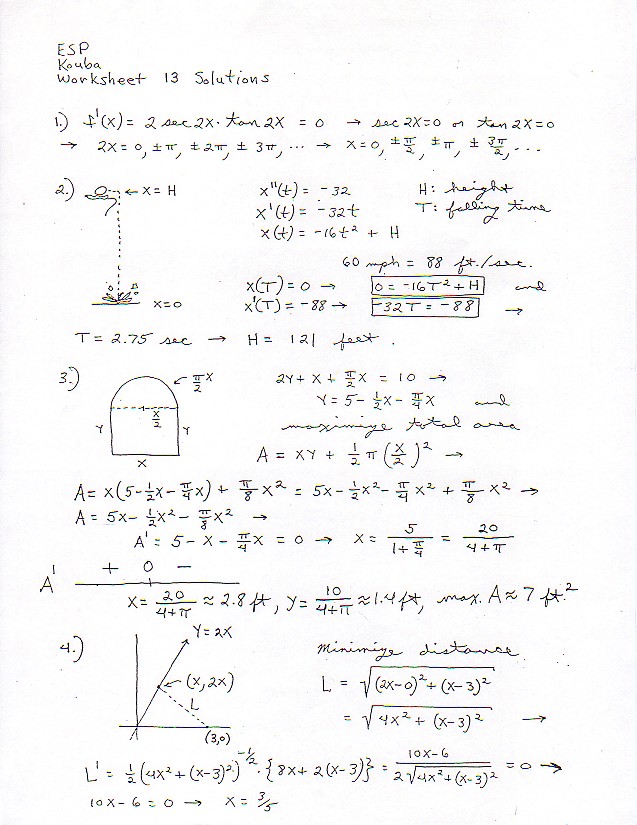 ESP
Kouba
Worksheet 13 Solutions
1.) f'(x) = 2 sec 2x · tan 2x = 0 → sec 2x = 0 or tan 2x = 0
→ 2x = 0, ±π, ±2π, ±3π, ··· → x = 0, ±π/2, ±π, ±3π/2, ...
2.) ← x = H x''(t) = -32 H: height
x'(t) = -32t T: falling time
x(t) = -16t² + H
60 mph = 88 ft./sec.
x(T) = 0 → 0 = -16T² + H and
x = 0 x'(T) = -88 → -32T = -88 →
T = 2.75 sec → H = 121 feet.
3.) π/2 x 2Y + x + π/2 x = 10 →
x/2 Y = 5 - 1/2 x - π/4 x and
Y Y maximize total area
x A = xY + 1/2 π (x/2)² →
A = x(5 - 1/2 x - π/4 x) + π/8 x² = 5x - 1/2 x² - π/4 x² + π/8 x² →
A = 5x - 1/2 x² - π/8 x² →
A' = 5 - x - π/4 x = 0 → x = 5/(1 + π/4) = 20/(4+π)
A' + 0 -
x = 20/(4+π) ≈ 2.8 ft, y = 10/(4+π) ≈ 1.4 ft, max. A ≈ 7 ft.²
4.) Y = 2x Minimize distance
(x, 2x) L = √((2x-0)² + (x-3)²)
L = √(4x² + (x-3)²) →
(3,0)
L' = 1/2 (4x² + (x-3)²)^(-1/2) · {8x + 2(x-3)} = (10x-6)/(2√(4x² + (x-3)²)) = 0 →
10x - 6 = 0 → x = 3/5